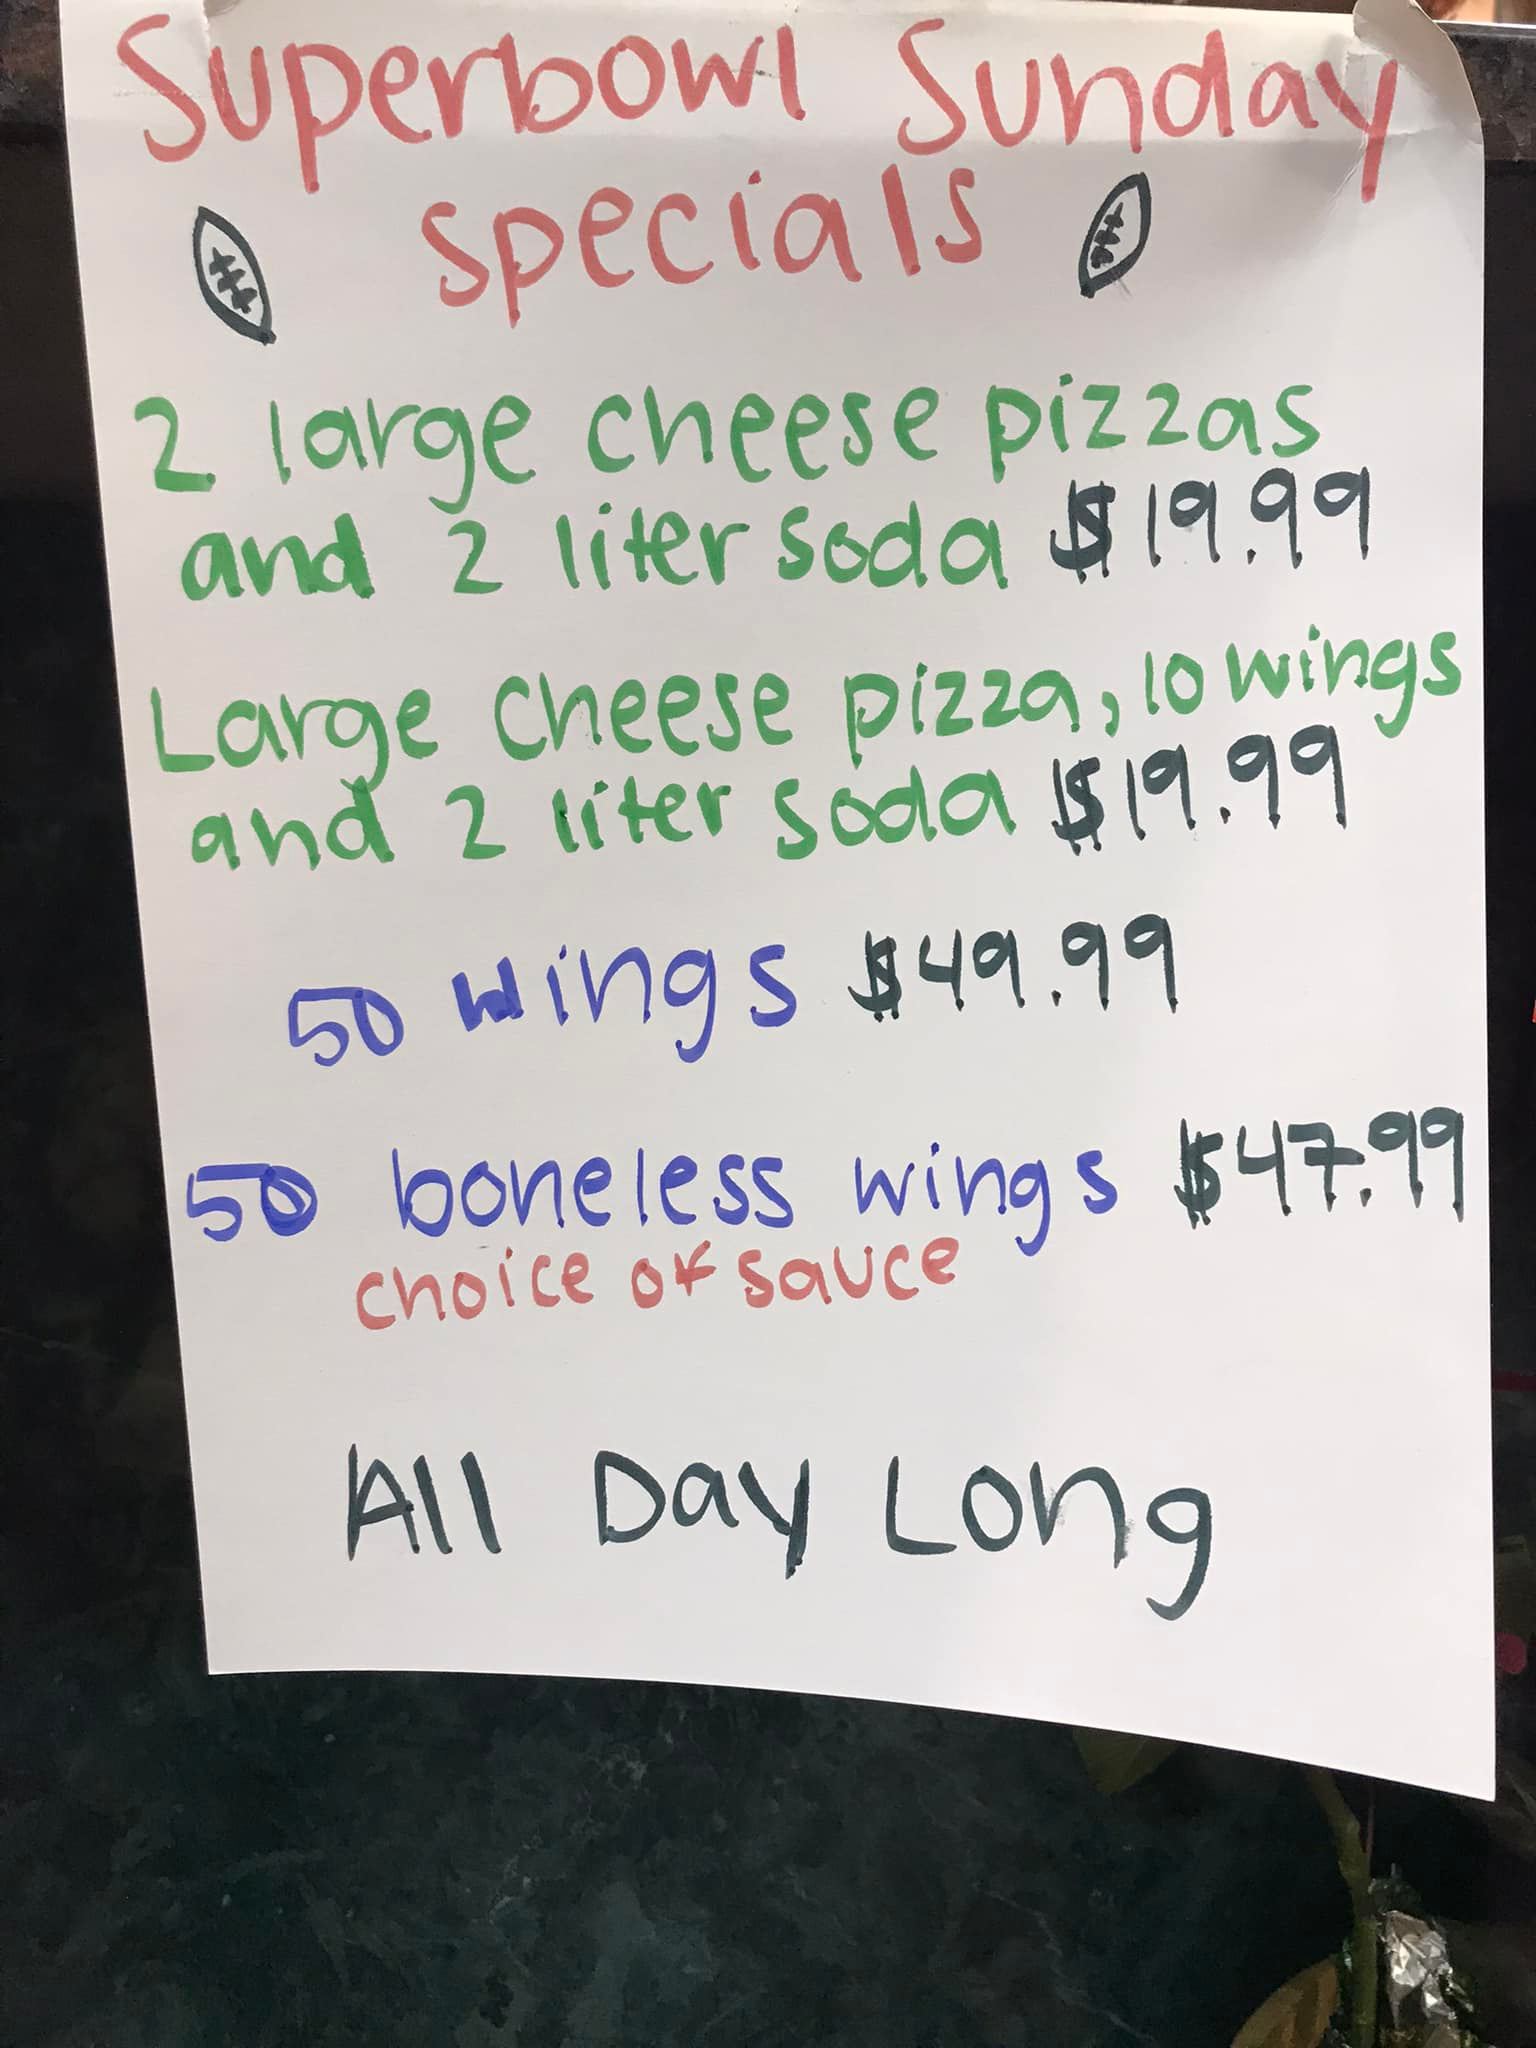 Superbowl Sunday
specials
2 large cheese pizzas
and 2 liter soda $19.99
Large cheese pizza, 10 wings
and 2 liter soda $19.99
50 wings $49.99
50 boneless wings $47.99
choice of sauce
All Day Long